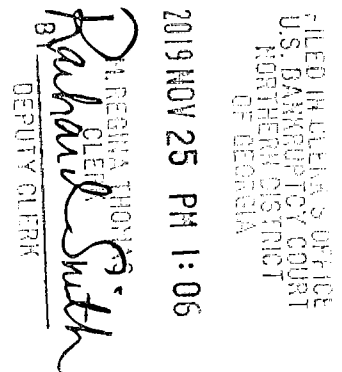 FILED IN CLERK'S OFFICE
U.S. BANKRUPTCY COURT
NORTHERN DISTRICT
OF GEORGIA
2019 NOV 25 PM 1:06
M. REGINA THOMAS
CLERK
BY Smith
DEPUTY CLERK